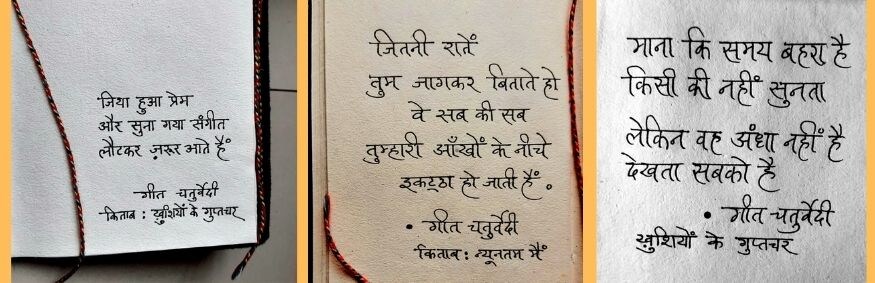 जिया हुआ प्रेम
और सुना गया संगीत
लौटकर ज़रूर आते हैं
गीत चतुर्वेदी
किताब : ख़ुशियों के गुप्तचर
जितनी रातें
तुम जागकर बिताते हो
वे सब की सब
तुम्हारी आँखों के नीचे
इकट्ठा हो जाती हैं.
• गीत चतुर्वेदी
किताब : न्यूनतम मैं
माना कि समय बहरा है
किसी की नहीं सुनता
लेकिन वह अंधा नहीं है
देखता सबको है
• गीत चतुर्वेदी
ख़ुशियों के गुप्तचर